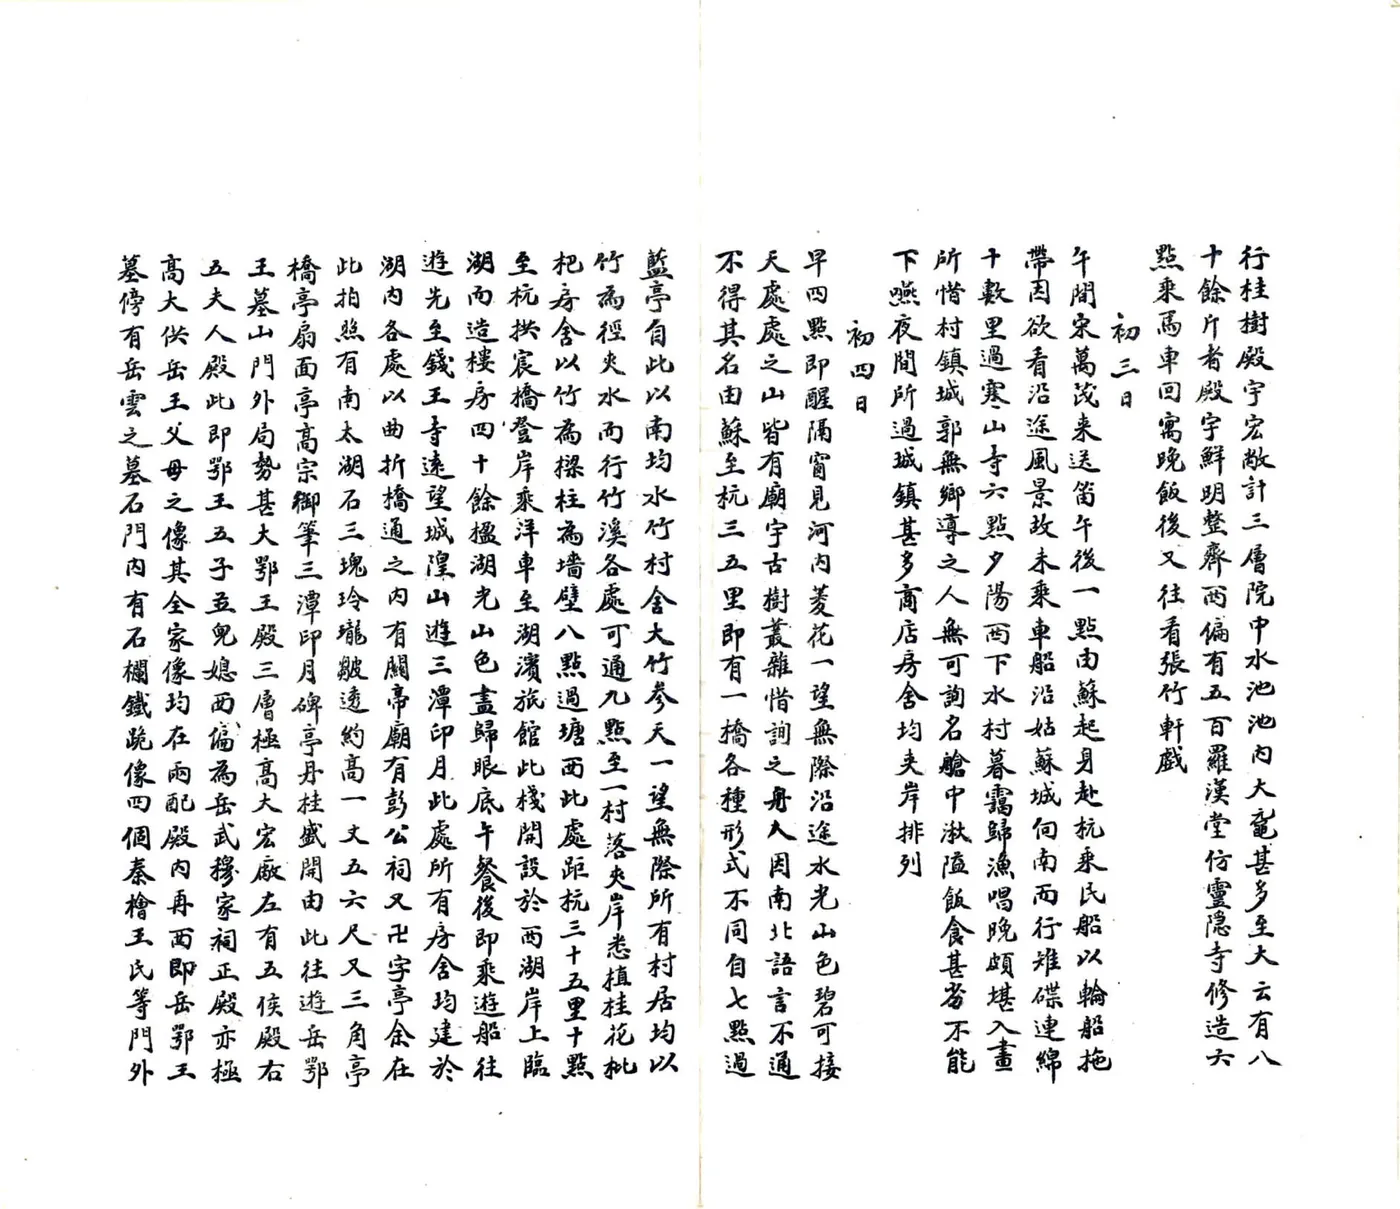 行桂樹殿宇宏敞計三層院中水池池内大黿甚多至大云有八
十餘斤者殿宇鮮明整齊西偏有五百羅漢堂仿靈隠寺修造六
點乘馬車回寓晚飯後又往看張竹軒戲
初三日
午間宋萬茂来送笛午後一點由蘇起身赴杭乘民船以輪船拖
帶因欲看沿途風景故未乘車船沿姑蘇城向南而行雉碟連綿
十數里過寒山寺六點夕陽西下水村暮靄歸漁唱晚頗堪入畫
所惜村鎮城郭無鄉導之人無可詢名艙中湫隘飯食甚劣不能
下嚥夜間所過城鎮甚多商店房舍均夾岸排列
初四日
早四點即醒隔窗見河内菱花一望無際沿途水光山色碧可接
天處處之山皆有廟宇古樹叢雜惜詢之舟人因南北語言不通
不得其名由蘇至杭三五里即有一橋各種形式不同自七點過
藍亭自此以南均水竹村舍大竹参天一望無際所有村居均以
竹為徑夾水而行竹溪各處可通九點至一村落夾岸悉植桂花枇
杷房舍以竹為樑柱為墻壁八點過塘西此處距杭三十五里十點
至杭拱宸橋登岸乘洋車至湖濱旅館此棧開設於西湖岸上臨
湖而造樓房四十餘楹湖光山色盡歸眼底午餐後即乘遊船往
遊先至錢王寺遠望城隍山遊三潭印月此處所有房舍均建於
湖内各處以曲折橋通之内有關帝廟有彭公祠又卍字亭余在
此拍照有南太湖石三瑰玲瓏皺透約高一丈五六尺又三角亭
橋亭扇面亭高宗御筆三潭印月碑亭丹桂盛開由此往遊岳鄂
王墓山門外局勢甚大鄂王殿三層極高大宏敞左有五侯殿右
五夫人殿此即鄂王五子並兒媳西偏為岳武穆家祠正殿亦極
高大供岳王父母之像其全家像均在兩配殿内再西即岳鄂王
墓傍有岳雲之墓石門内有石欄鐵跪像四個秦檜王氏等門外